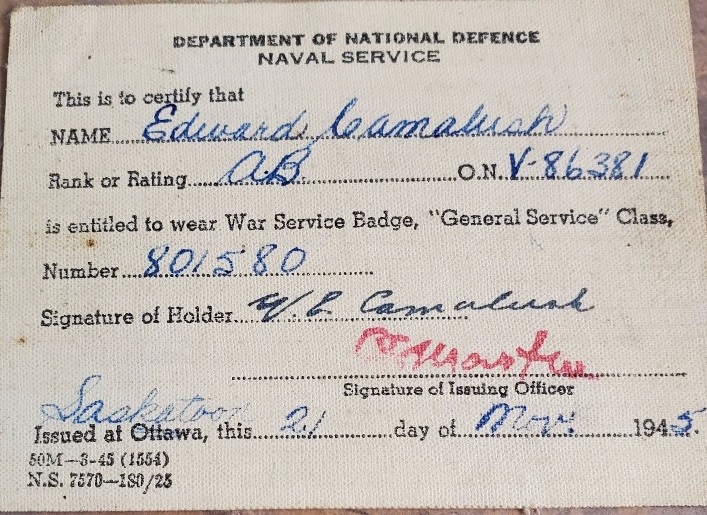 DEPARTMENT OF NATIONAL DEFENCE
NAVAL SERVICE
This is to certify that
NAME Edward Camalush
Rank or Rating A.B. O.N. V-86381
is entitled to wear War Service Badge, "General Service" Class,
Number 801580
Signature of Holder Camalush
Signature of Issuing Officer
Saskatoon
Issued at Ottawa, this 21 day of Nov. 1945.
50M—3-45 (1554)
N.S. 7570—180/25